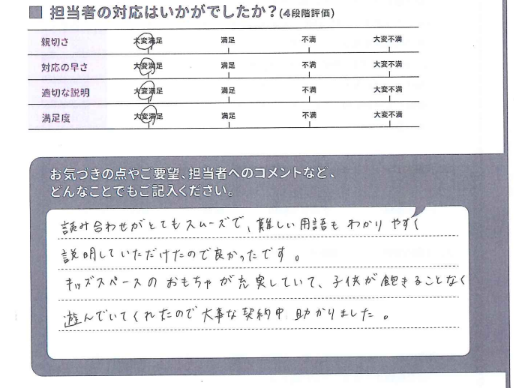 ■ 担当者の対応はいかがでしたか?(4段階評価)
親切さ 大変満足 満足 不満 大変不満
対応の早さ 大変満足 満足 不満 大変不満
適切な説明 大変満足 満足 不満 大変不満
満足度 大変満足 満足 不満 大変不満
お気づきの点やご要望、担当者へのコメントなど、
どんなことでもご記入ください。
読み合わせがとてもスムーズで、難しい用語も わかりやすく
説明していただけたので良かったです。
キッズスペースの おもちゃが充実していて、子供が飽きることなく
遊んでいてくれたので大事な契約中 助かりました。